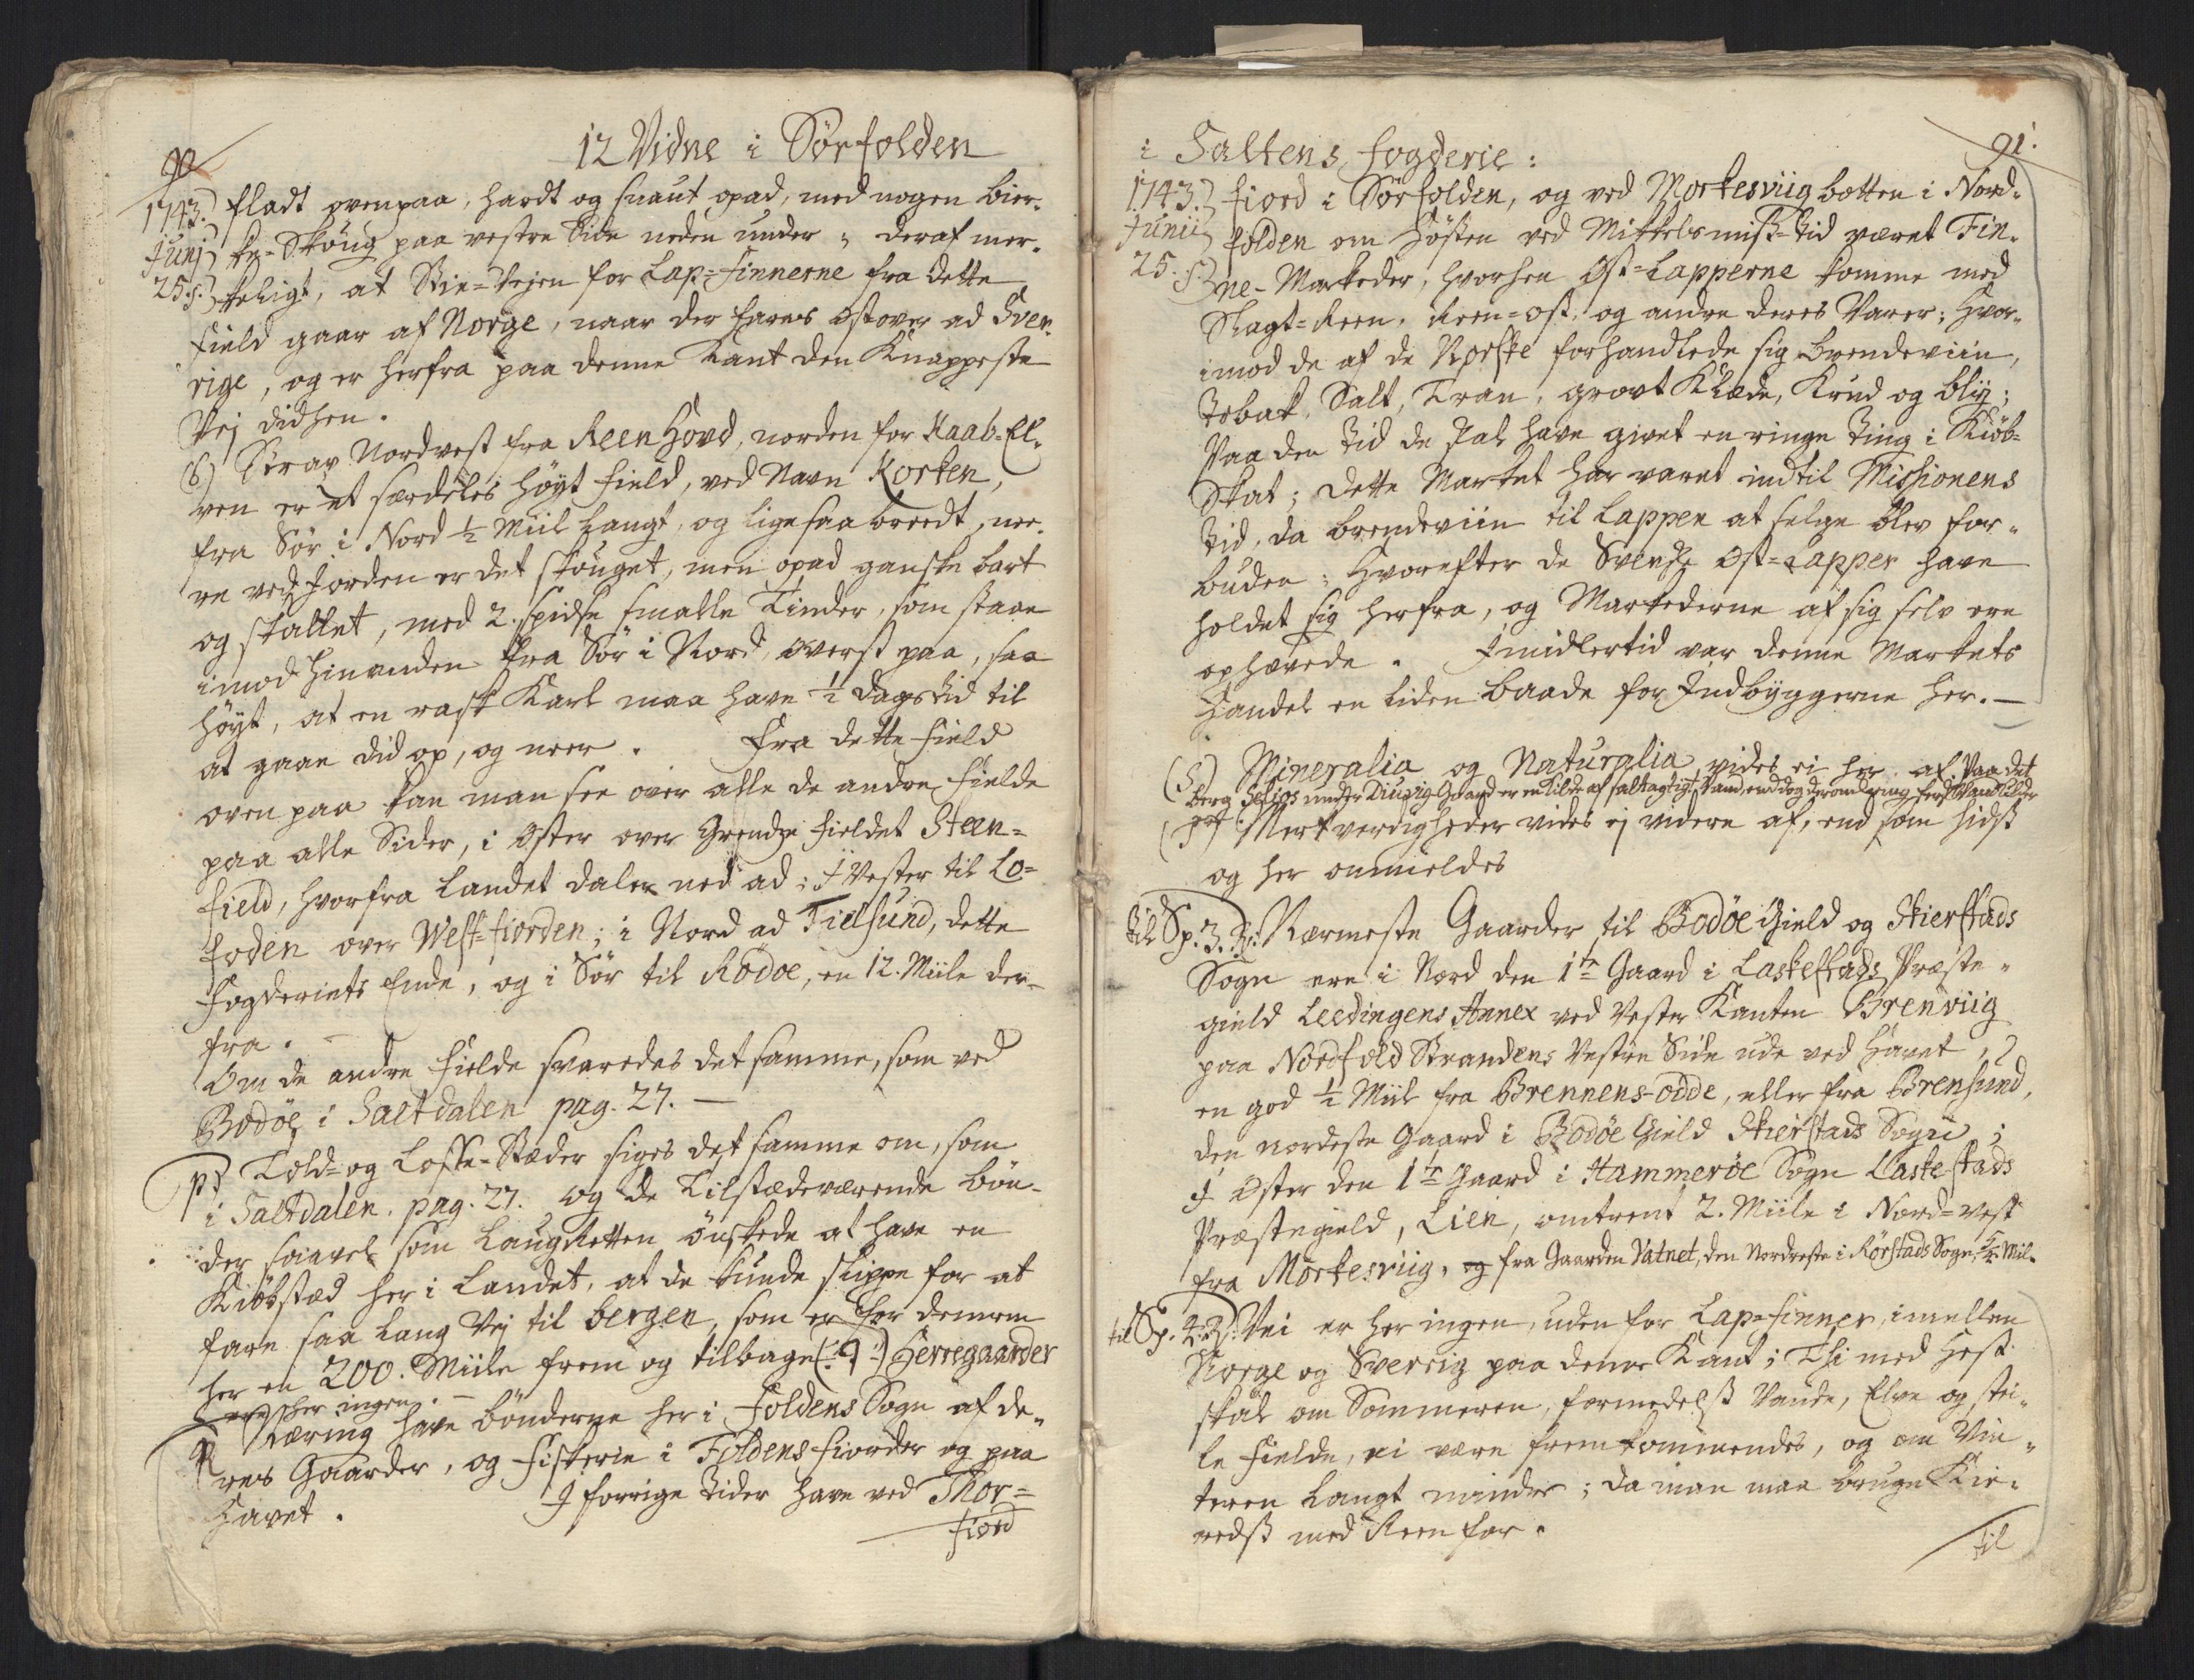 90
12 Vidne i Sørfolden
1743. fladt ovenpaa, hardt og snaut opad, med nogen bier-
Junj ke-Skoug paa vestre Side neden under, deraf mer-
25. s. keligt, at Skie-Vejen for Lap-finnerne fra dette
field gaar af Norge, naar der fares Ostover ad Sver-
rige, og er herfra paa denne Kant den Knappeste
Vej didhen.
(6) Strax Nordvest fra Reen Hovd, norden for Kaab-El-
ven er et særdeles höyt field, ved Navn Korken,
fra Sør i Nord ½ Miil Langt, og lige saa breedt, nee-
re ved Jorden er det skouget, men opad ganske bart
og skallet, med 2. spidse smalle Tinder, som staae
imod hinanden fra Sør i Nord, överst paa, saa
höyt, at en rask Karl maa have ½ dags tid til
at gaae did op, og neer. Fra dette field
oven paa kan man see over alle de andre fielde
paa alle Sider, i Öster over Grendse fieldet Steen-
field, hvorfra Landet daler ned ad; I Vester til Lo-
foden over West-fiorden; i Nord ad Tielsund, dette
Fogderiets Ende, og i Sør til Rödöe, en 12. Miile der-
fra.
Om de andre fielde svaredes det samme, som ved
Bodöe i Saltdalen pag. 27. —
p) Told- og Losse-Stæder siges det samme om, som
i Saltdalen. pag. 27. og de Tilstædeværende bön-
der saavel som LaugRetten önskede at have en
Kiöbstæd her i Landet, at de kunde slippe for at
fare saa Lang Vej til bergen, som er for dem
her en 200. Miile frem og tilbage (: q :) Herregaarder
ere her ingen.
Næring have bönderne her i Foldens Sogn af de-
res Gaarder, og fiskerie i Foldens-fiorder og paa
Havet. I forrige tider have ved Thor-
fiord
91.
i Saltens fogderie:
1743. fiord i Sörfolden, og ved Morkesviig botten i Nord-
Junii folden om Hösten ved Mikkelsmiss-tid været Fin-
25. s. ne-Markeder, hvorhen Ost-Lapperne komme med
Slagt-Reen, Reen-ost, og andre deres Varer; Hvor-
imod de af de Norske forhandlede sig brendeviin,
Tobak, Salt, Tran, grovt Klæde, Krud og bly;
Paa den tid de skal have givet en ringe ting i Kiöb-
Skat; dette Market har varet indtil Missionens
tid, da brendeviin til Lappen at selge blev for-
buden; Hvorefter de Svenske Ost-Lapper have
holdet sig herfra, og Markederne af sig selv ere
ophævede. Imidlertid var denne Markets
Handel en liden baade for Indbyggerne her. —
(s) Mineralia og Naturalia vides ei her af. Paa det
berg under Diuvig Gaard er en kilde af saltagtigt Vand, end dog deromkring fersk Vand
Merkverdigheder vides ej videre af, end som hidst
og her anmeldes
til Sp. 3. Nærmeste Gaarder til Bodöe Gield og Skierstads
Sogn ere i Nord den 1te Gaard i Laskestads Præste-
gield Leedingens Annex ved Vester Kanten Brenviig
paa Nordfold Strandens Vestre Side ude ved Havet,
en god ½ Miil fra Brennens-odde, eller fra Brensund,
den nordeste Gaard i Bodöe Gield Skierstads Sogn;
I Öster den 1te Gaard i Hammeröe Sogn Laskestads
Præstegield, Lien, omtrent 2. Miile i Nord-vest
fra Mörkesviig, og fra Gaarden Vatnet, den Nordreste i Rörstads Sogn, Mil.
til Sp. 4. Vei er her ingen, uden for Lap-finner, imellem
Norge og Sverrig paa denne Kant; Thi med Hest
skal om Sommeren, formedelst Vande, Elve og stei-
le fielde, ei være fremkommendes, og om Vin-
teren Langt mindre; da man maa bruge Kie-
redss med Reen for.
til